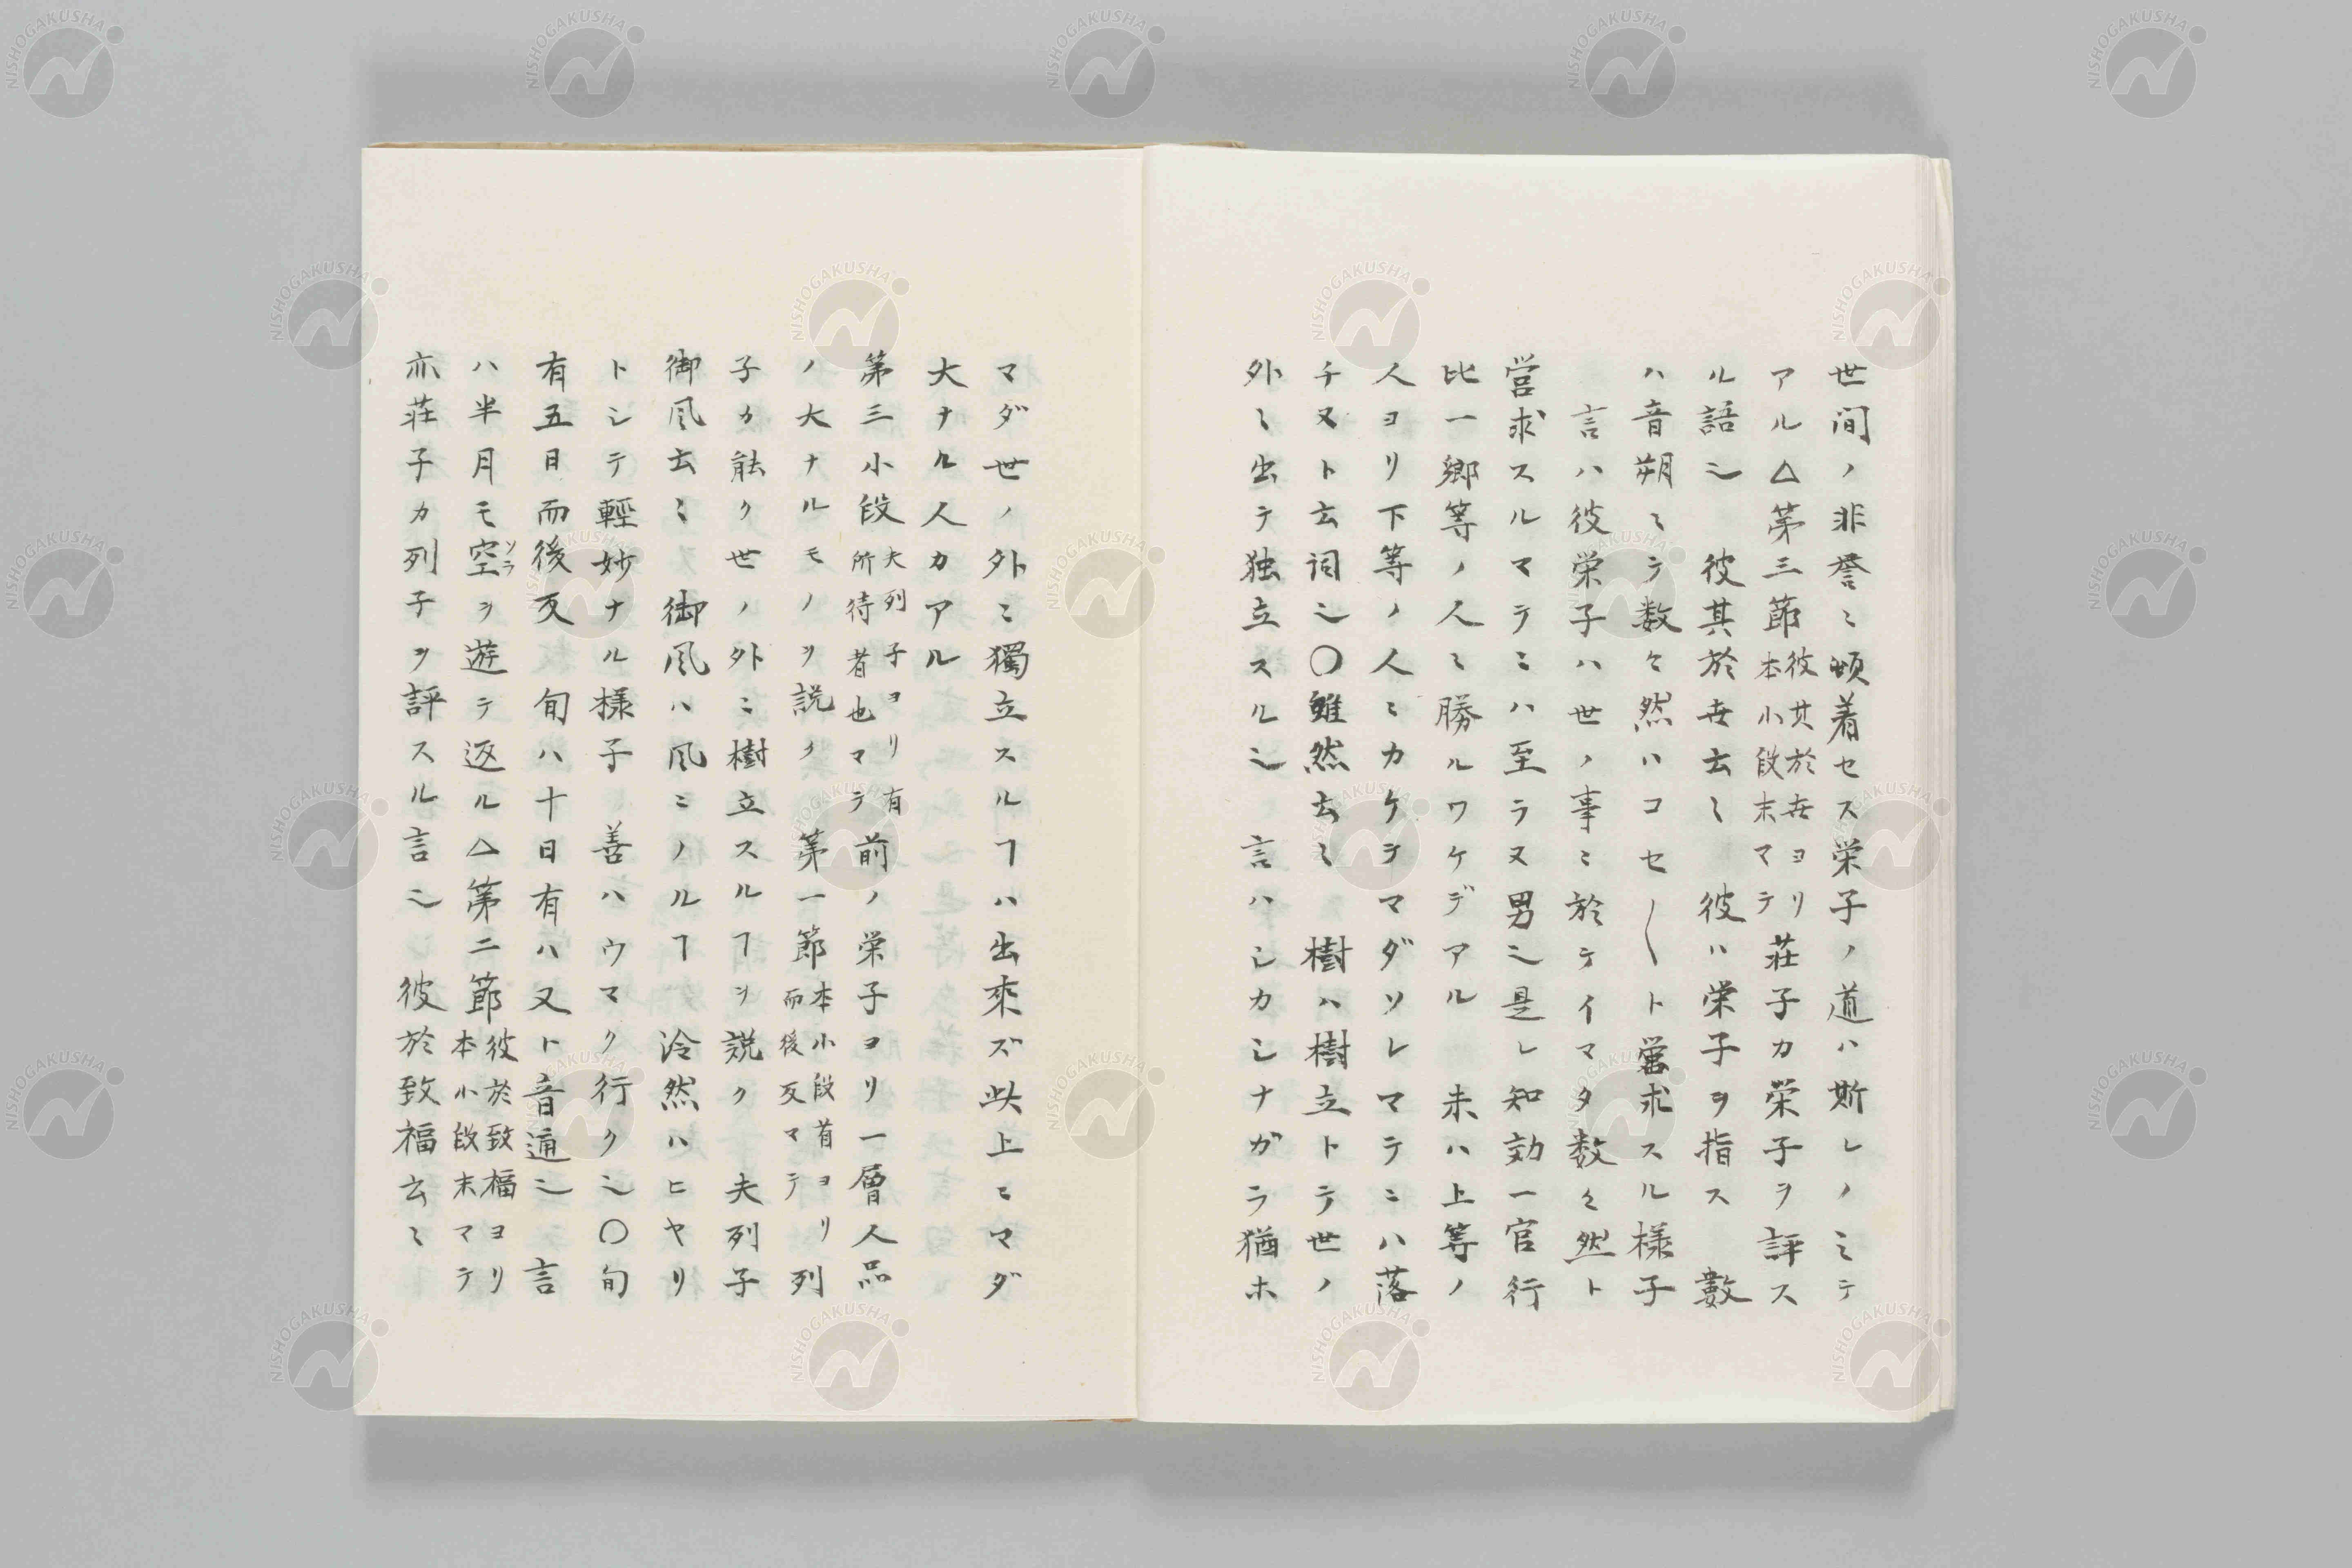 世間ノ非誉ニ頓着セス栄子ノ道ハ斯レノミニテ
アル△第三節彼其於世ヨリ本小段末マテ荘子カ栄子ヲ評ス
ル語也 彼其於世云〻 彼ハ栄子ヲ指ス 數
ハ音朔ミテ数々然ハコセ〱ト営求スル様子
言ハ彼栄子ハ世ノ事ニ於テイマタ数々然ト
営求スルマテニハ至ラヌ男也是レ知効一官行
比一郷等ノ人ニ勝ルワケデアル 未ハ上等ノ
人ヨリ下等ノ人ニカケテマダソレマテニハ落
チヌト云詞也〇雖然云〻 樹ハ樹立トテ世ノ
外ニ出テ独立スル也 言ハシカシナガラ猶ホ
マダ世ノ外ニ獨立スルヿハ出來ズ此上ニマダ
大ナル人カアル
第三小段夫列子ヨリ有所待者也マテ前ノ栄子ヨリ一層人品
ノ大ナルモノヲ説ク 第一節本小段首ヨリ而後反マテ列
子カ能ク世ノ外ニ樹立スルヿヲ説ク 夫列子
御風云〻 御風ハ風ニノルヿ 泠然ハヒヤリ
トシテ輕妙ナル様子 善ハウマク行ク也〇旬
有五日而後反 旬ハ十日有ハ又ト音通也 言
ハ半月モ空ソラヲ遊テ返ル△第二節彼於致福ヨリ本小段末マテ
亦荘子カ列子ヲ評スル言也 彼於致福云〻
NISHOGAKUSHA